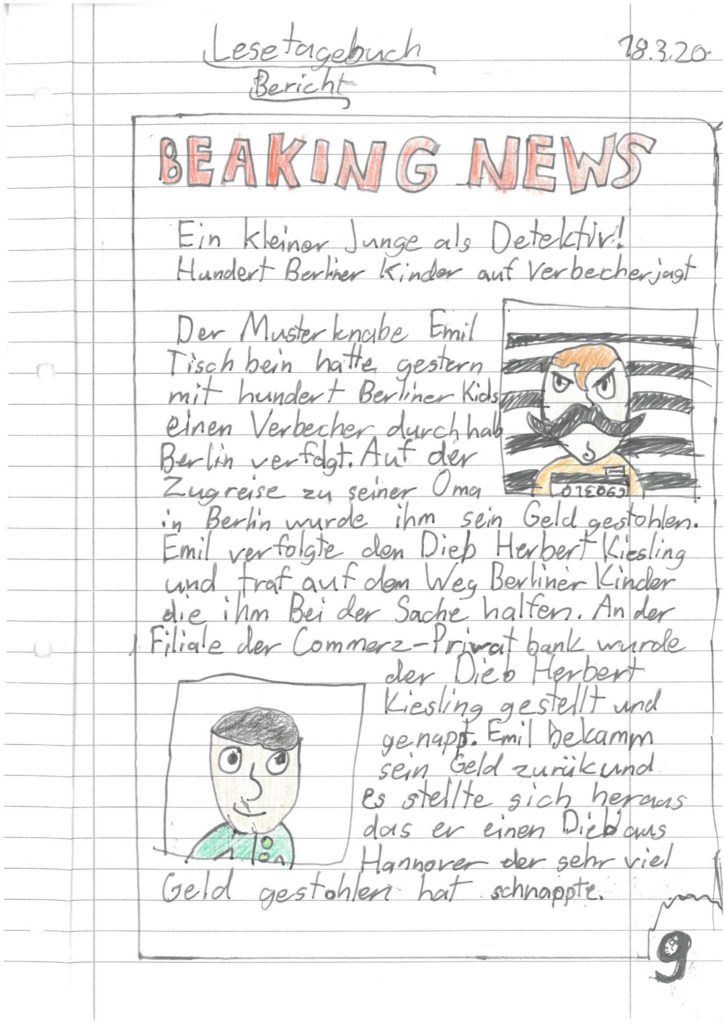 Lesetagebuch
18.3.20
Bericht
BEAKING NEWS
Ein kleiner Junge als Detektiv!
Hundert Berliner Kinder auf Verbecherjagt
Der Musterknabe Emil
Tischbein hatte gestern
mit hundert Berliner Kids
einen Verbecher durch hab
Berlin verfolgt. Auf der
Zugreise zu seiner Oma
in Berlin wurde ihm sein Geld gestohlen.
Emil verfolgte den Dieb Herbert Kiesling
und traf auf dem Weg Berliner Kinder
die ihm Bei der Sache halfen. An der
Filiale der Commerz-Privat bank wurde
der Dieb Herbert
Kiesling gestellt und
genappt. Emil bekamm
sein Geld zurük und
es stellte sich heraus
das er einen Dieb aus
Hannover der sehr viel
Geld gestohlen hat schnappte.
9